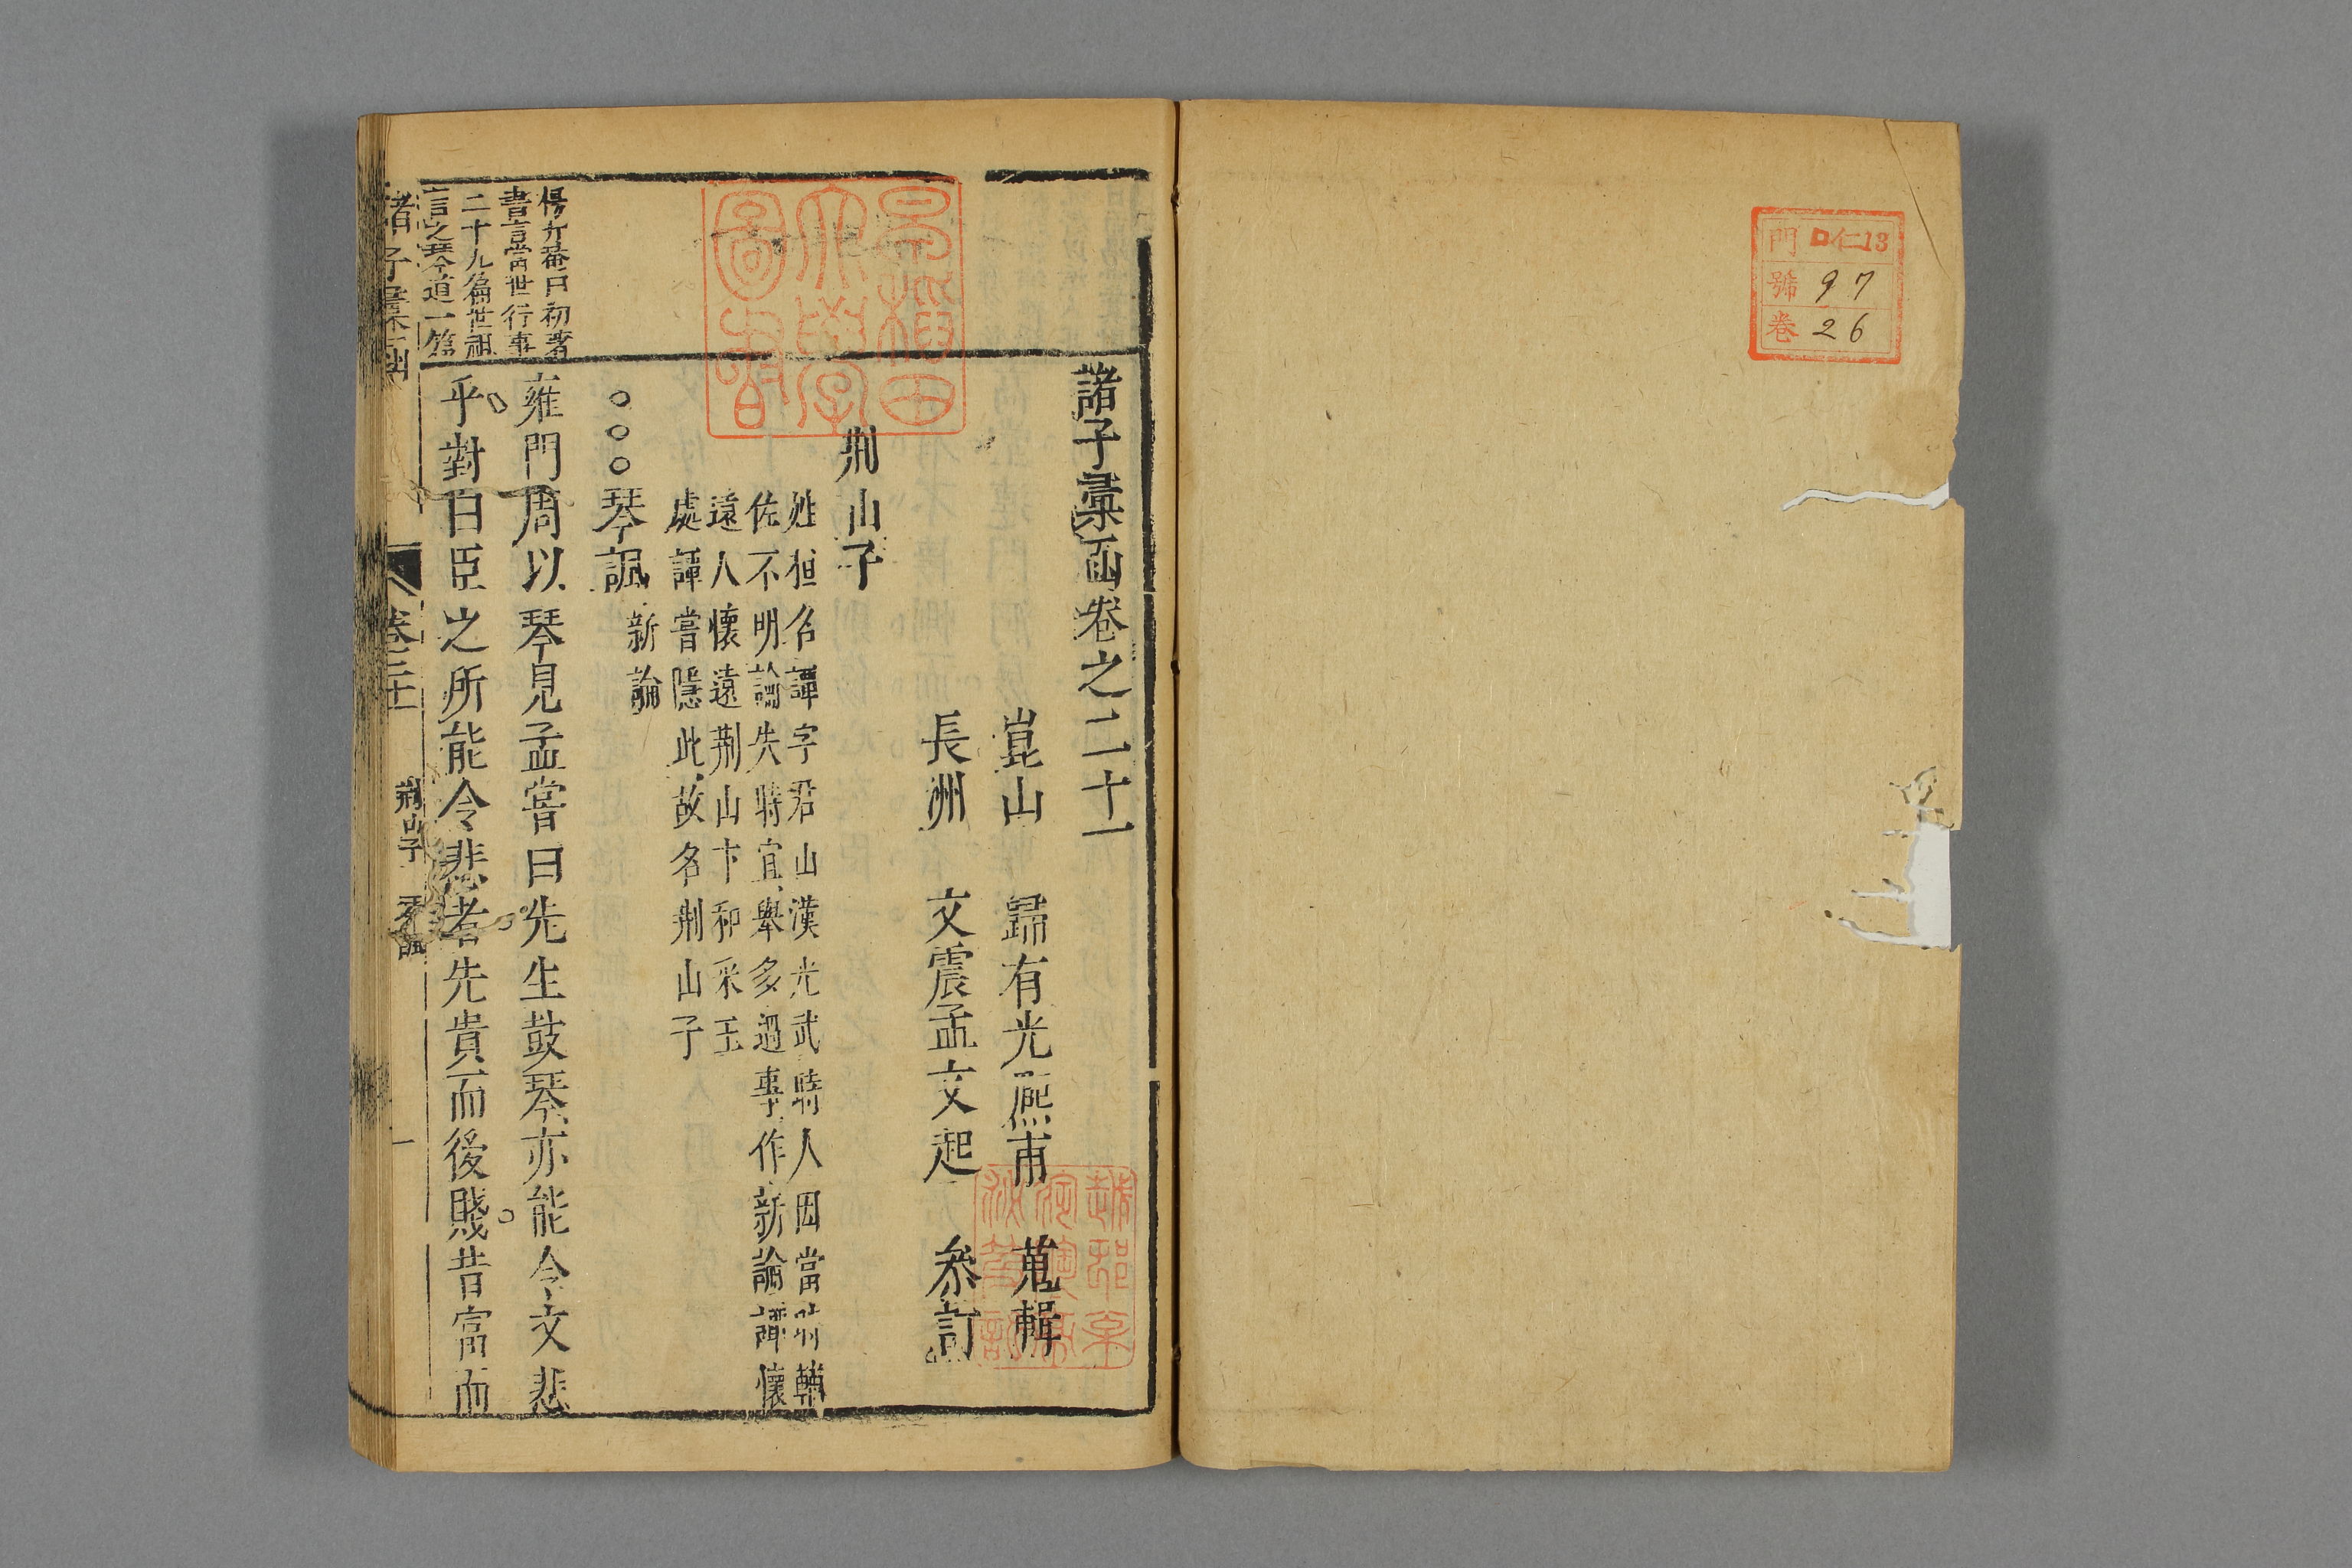 門 仁13
號 97
卷 26
諸子彙函卷之二十一
崑山 歸有光熙甫 蒐輯
長洲 文震孟文起 參訂
荆山子
姓桓名譚字君山漢光武時人因當時輔
佐不明論失時宜舉多過事作新論譚懷
遠人懷遠荆山卞和采玉
處譚嘗隱此故名荆山子
琴諷
新論
楊升菴曰初著
書言當世行事
二十九篇世祖
言之琴道一篇
雍門周以琴見孟嘗曰先生鼓琴亦能令文悲
乎對曰臣之所能令悲者先貴而後賤昔富而
諸子彙函
卷二十一
荆山子 琴諷
一
早稻田大學圖書